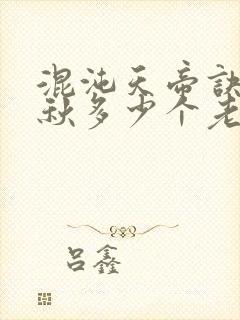 混沌天帝诀
秋多少个老
吕鑫